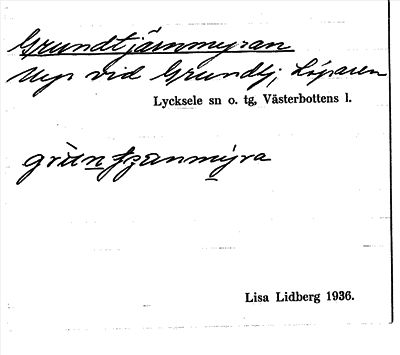 Grundtjärnmyran
Myr vid Grundtj, Löparen
Lycksele sn o. tg, Västerbottens l.
grùn tʒanmýra
Lisa Lidberg 1936.